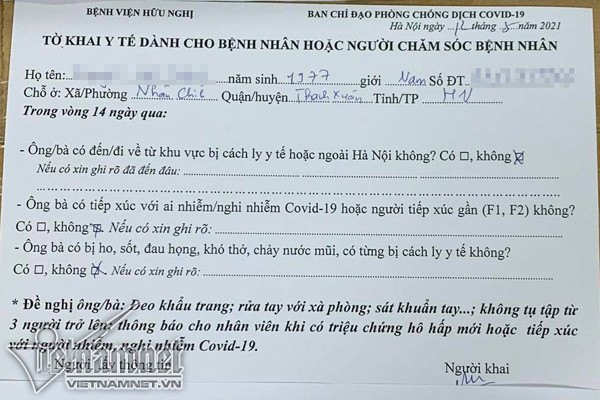 BỆNH VIỆN HỮU NGHỊ BAN CHỈ ĐẠO PHÒNG CHỐNG DỊCH COVID-19
Hà Nội ngày 12 tháng 5 năm 2021
TỜ KHAI Y TẾ DÀNH CHO BỆNH NHÂN HOẶC NGƯỜI CHĂM SÓC BỆNH NHÂN
Họ tên: năm sinh 1977 giới Nam Số ĐT
Chỗ ở: Xã/Phường Nhân Chính Quận/huyện Thanh Xuân Tỉnh/TP HN
Trong vòng 14 ngày qua:
- Ông/bà có đến/đi về từ khu vực bị cách ly y tế hoặc ngoài Hà Nội không? Có □, không ☒
Nếu có xin ghi rõ đã đến đâu:
- Ông bà có tiếp xúc với ai nhiễm/nghi nhiễm Covid-19 hoặc người tiếp xúc gần (F1, F2) không?
Có □, không ☒ Nếu có xin ghi rõ:
- Ông bà có bị ho, sốt, đau họng, khó thở, chảy nước mũi, có từng bị cách ly y tế không?
Có □, không ☒ Nếu có xin ghi rõ:
* Đề nghị ông/bà: Đeo khẩu trang; rửa tay với xà phòng; sát khuẩn tay...; không tụ tập từ
3 người trở lên; thông báo cho nhân viên khi có triệu chứng hô hấp mới hoặc tiếp xúc
với người nhiễm, nghi nhiễm Covid-19.
Người lấy thông tin Người khai
vietnamnet
VIETNAMNET.VN